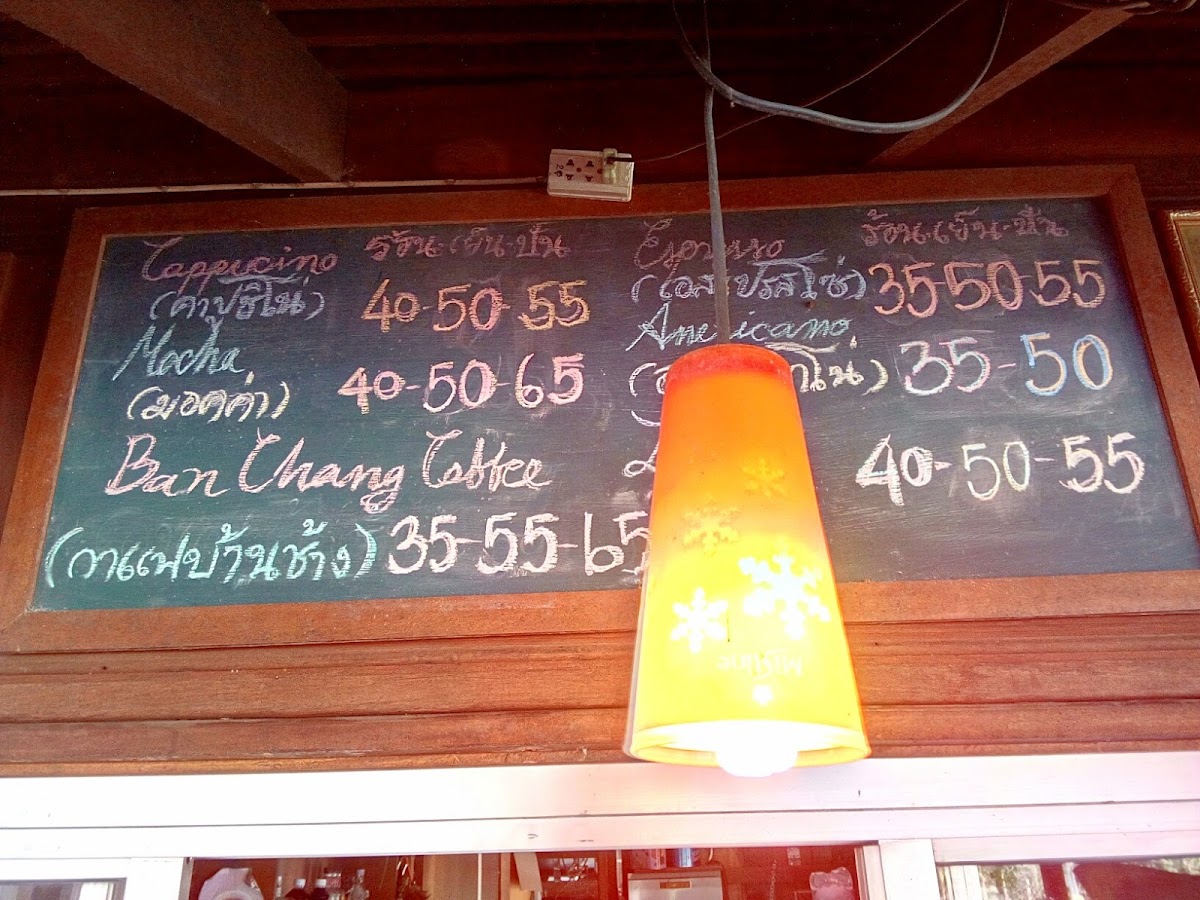 Cappucino ร้อน-เย็น-ปั่น
(คาปูชิโน่) 40-50-55
Mocha
(มอคค่า) 40-50-65
Ban Chang Coffee
(กาแฟบ้านช้าง) 35-55-65
Espresso ร้อน-เย็น-ปั่น
35-50-55
Americano
35-50
40-50-55